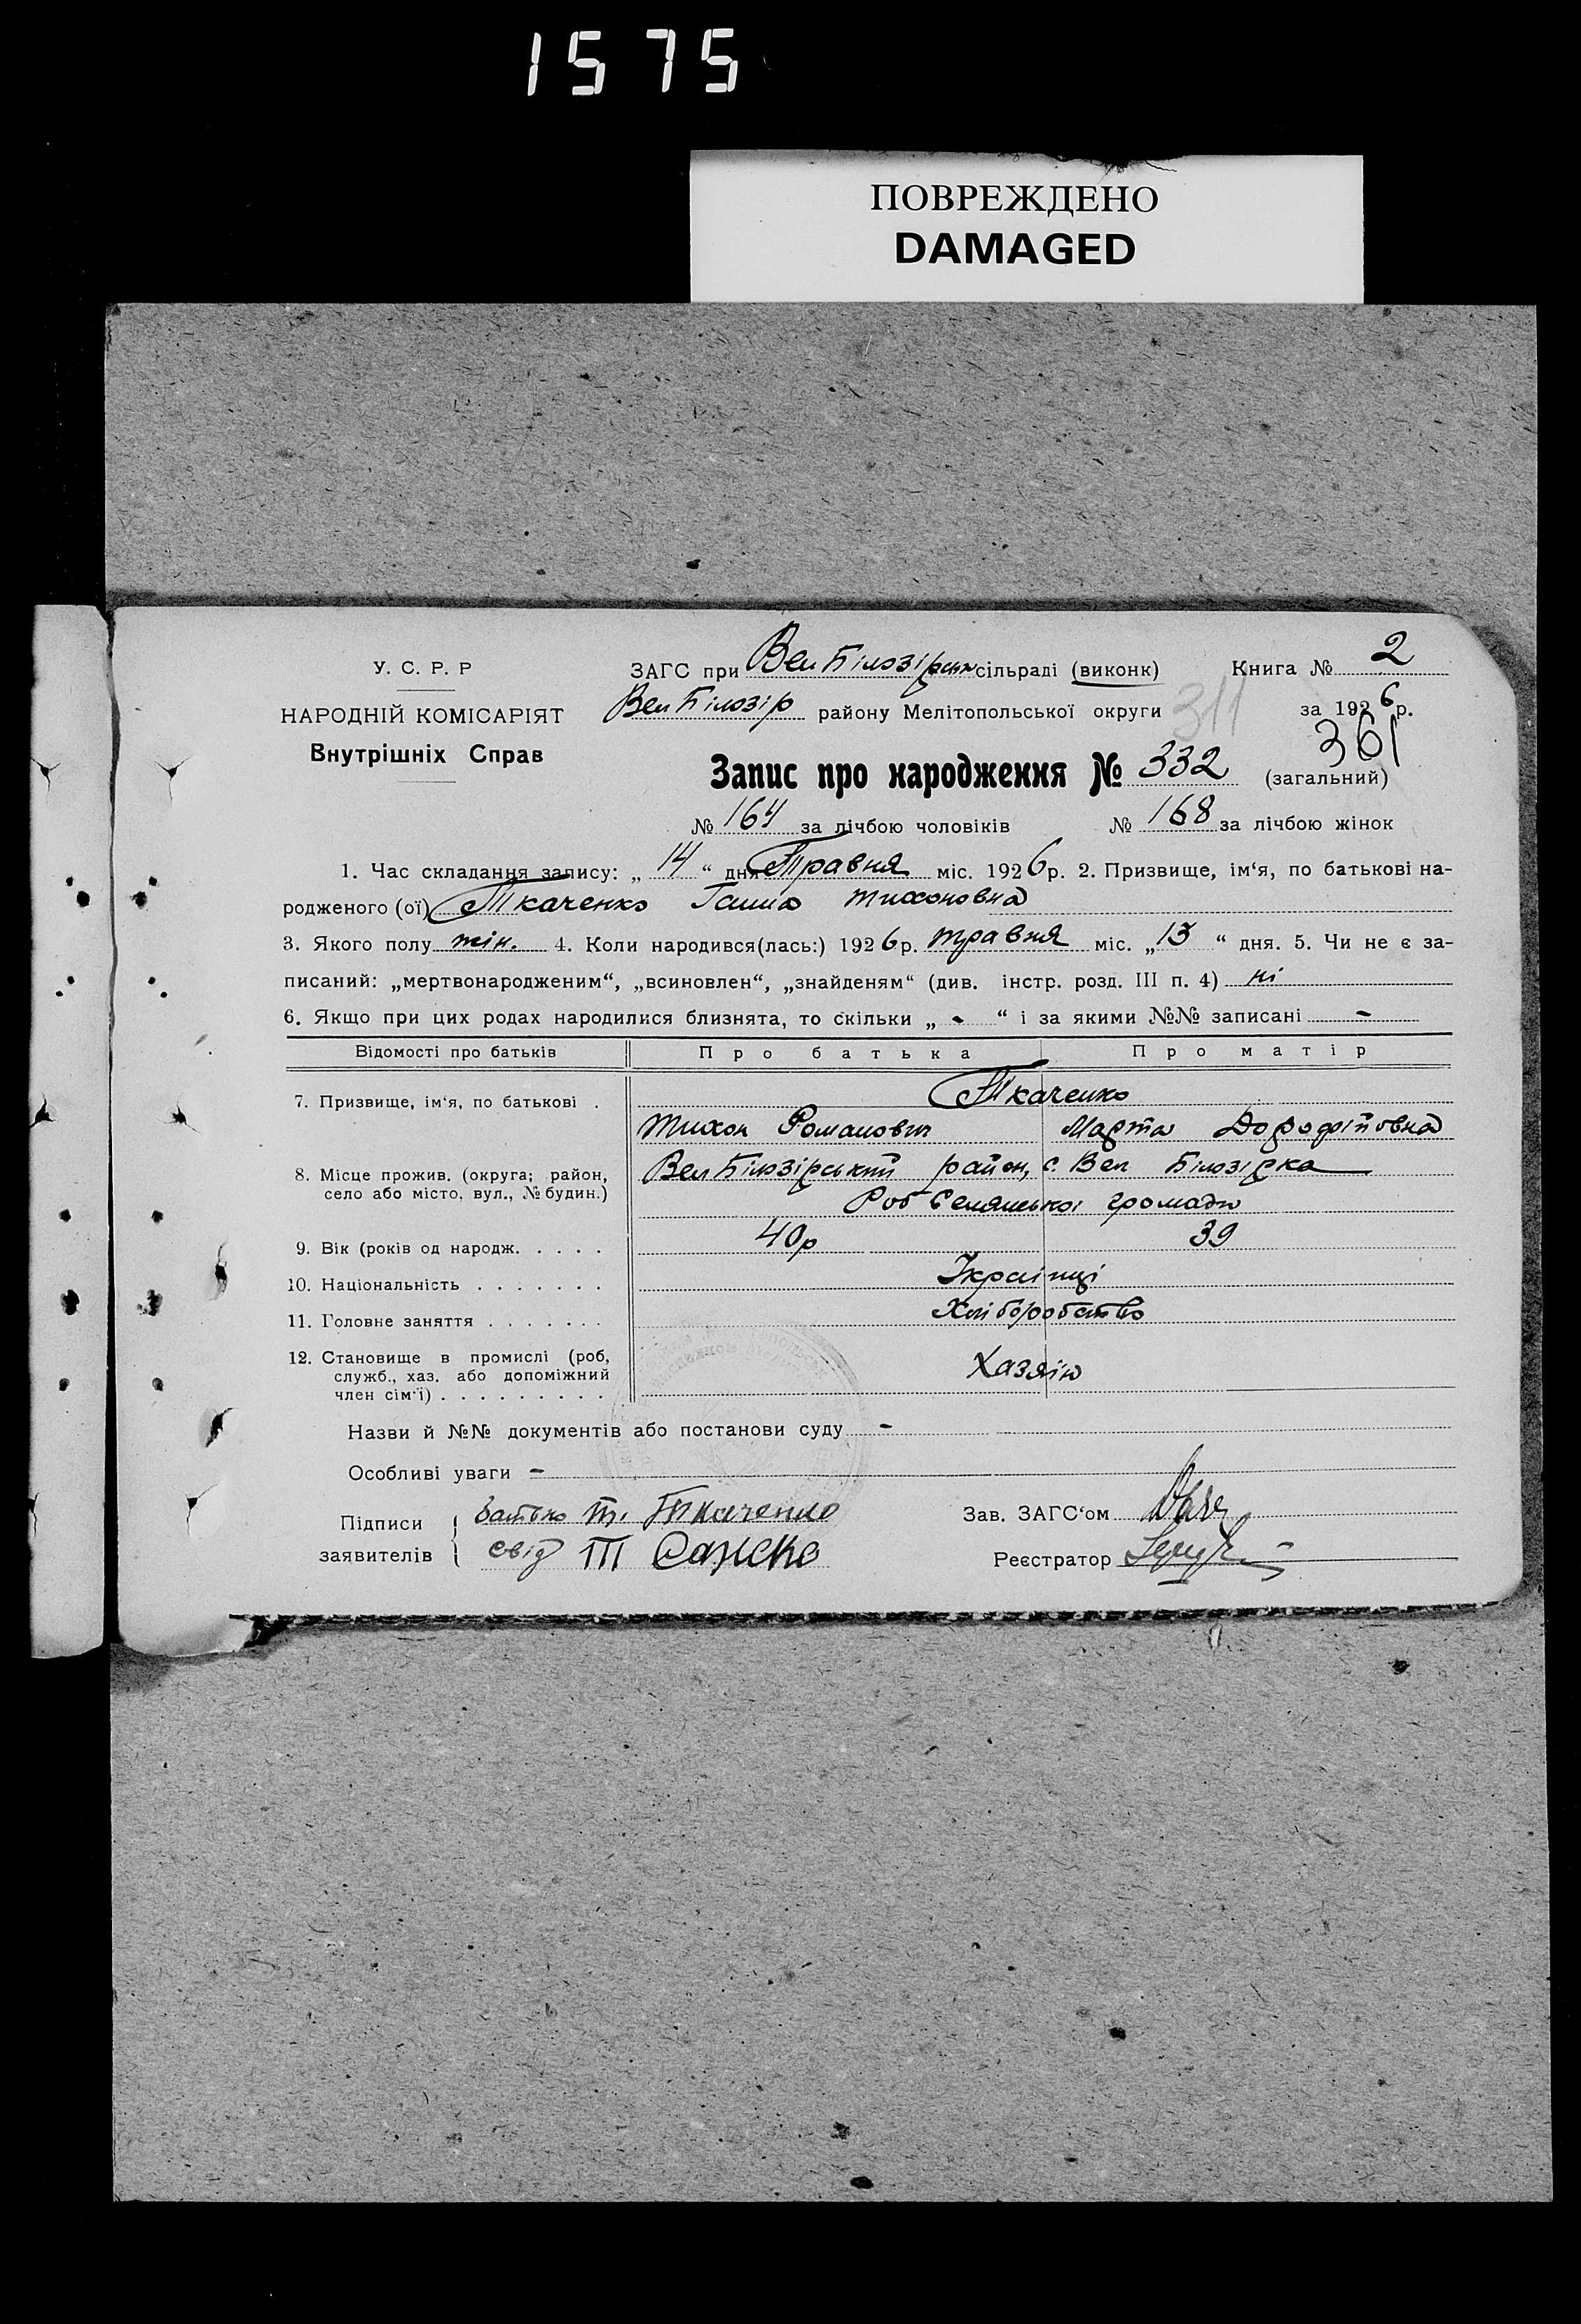 1575
ПОВРЕЖДЕНО
DAMAGED
У. С. Р. Р
НАРОДНІЙ КОМІСАРІЯТ
Внутрішніх Справ
ЗАГС при Вел Білозірськ сільраді (виконк)
Книга № 2
Вел Білозір району Мелітопольської округи
311
за 1926 р.
361
Запис про народження № 332 (загальний)
№ 164 за лічбою чоловіків № 168 за лічбою жінок
1. Час складання запису: „ 14 “ дня Травня міс. 1926 р. 2. Призвище, ім‘я, по батькові на-
родженого (ої) Ткаченко Ганна Тихоновна
3. Якого полу жін. 4. Коли народився(лась:) 1926 р. травня міс. „ 13 “ дня. 5. Чи не є за-
писаний: „мертвонародженим“, „всиновлен“, „знайденям“ (див. інстр. розд. III п. 4) ні
6. Якщо при цих родах народилися близнята, то скільки „ - “ і за якими №№ записані -
Відомості про батьків Про батька Про матір
7. Призвище, ім‘я, по батькові . Ткаченко
Тихон Романович Марта Дорофіївна
8. Місце прожив. (округа; район,
село або місто, вул., № будин.)
Вел Білозірський район, с. Вел Білозірка
Роб Селянської громади
9. Вік (років од народж. . . . . 40р 39
10. Національність . . . . . . . Українці
11. Головне заняття . . . . . . . Хліборобство
12. Становище в промислі (роб,
служб., хаз. або допоміжний
член сім‘ї) . . . . . . . . .
Хазяїн
Назви й №№ документів або постанови суду -
Особливі уваги -
Підписи
заявителів
батько Т. Ткаченко
свід Т
Зав. ЗАГС‘ом
Реєстратор